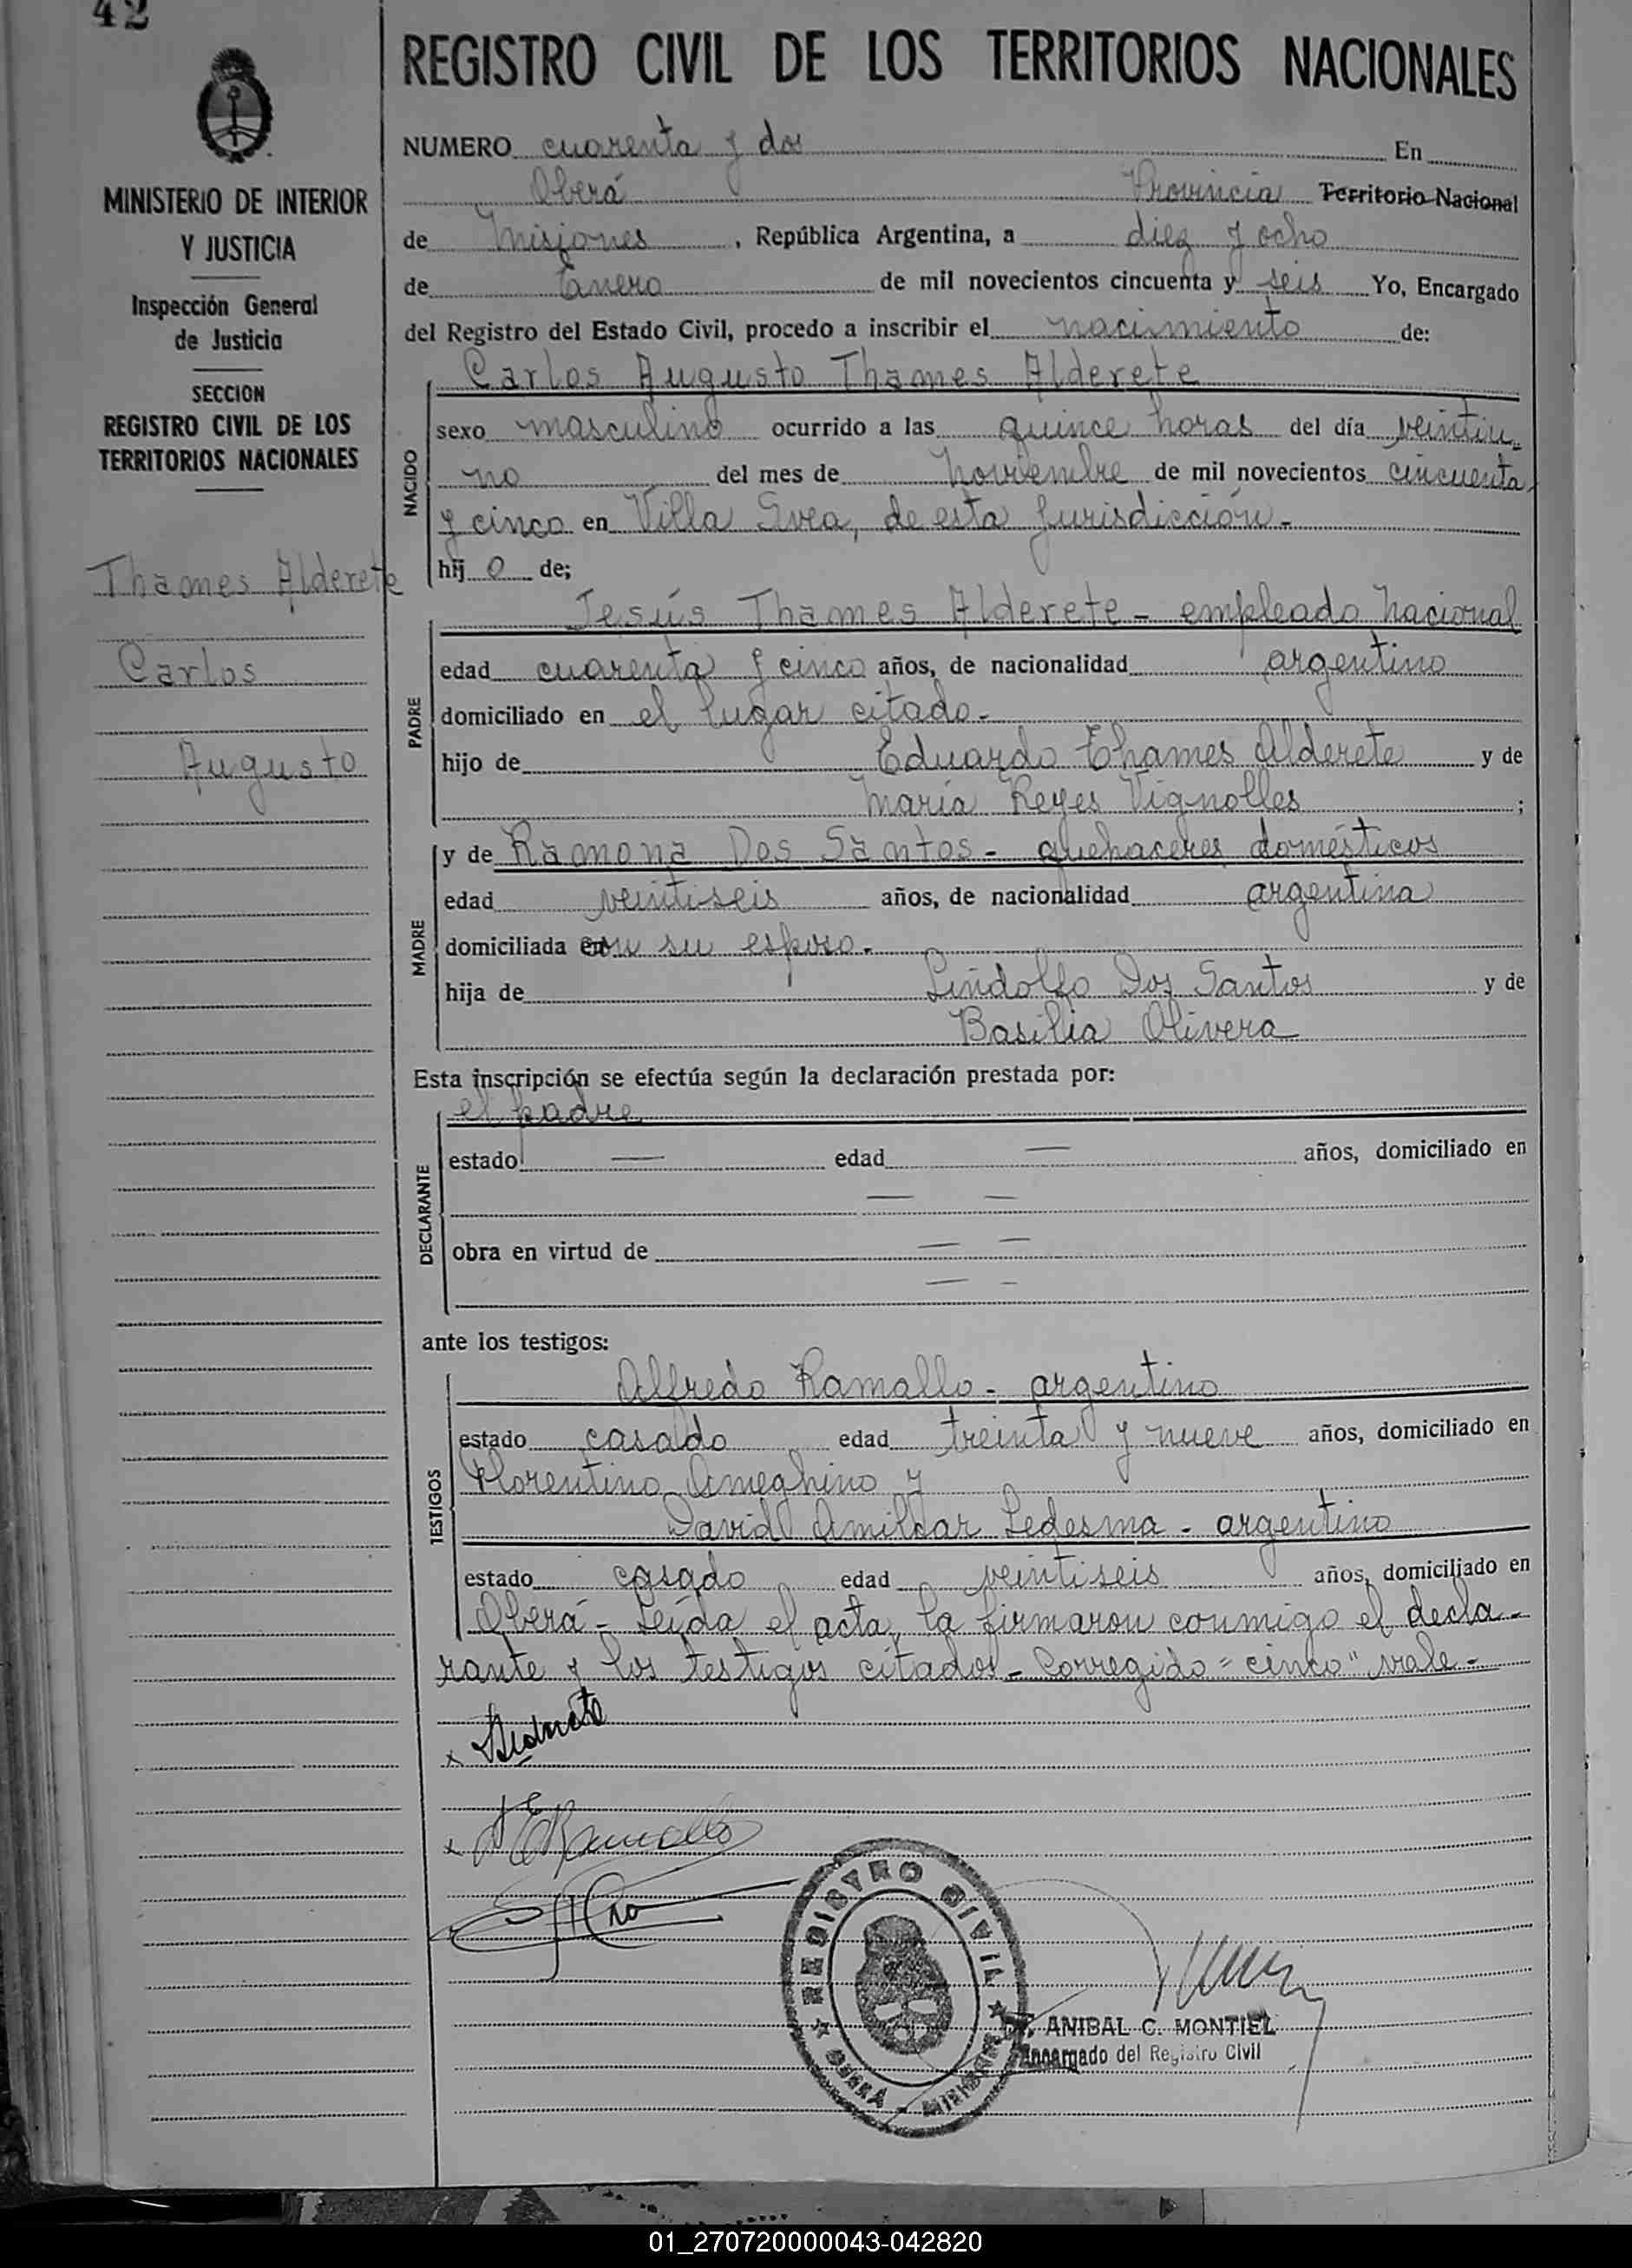 42
MINISTERIO DE INTERIOR
Y JUSTICIA
Inspección General
de Justicia
SECCION
REGISTRO CIVIL DE LOS
TERRITORIOS NACIONALES
Thames Alderete
Carlos
Augusto
REGISTRO CIVIL DE LOS TERRITORIOS NACIONALES
NUMERO cuarenta y dos En
Oberá Provincia Territorio Nacional
de Misiones, República Argentina, a diez y ocho
de Enero de mil novecientos cincuenta y seis Yo, Encargado
del Registro del Estado Civil, procedo a inscribir el nacimiento de:
NACIDO
Carlos Augusto Thames Alderete
sexo masculino ocurrido a las quince horas del día veintiu-
no del mes de noviembre de mil novecientos cincuenta
y cinco en Villa Svea, de esta jurisdicción.-
hijo de;
PADRE
Jesús Thames Alderete - empleado nacional
edad cuarenta y cinco años, de nacionalidad argentino
domiciliado en el lugar citado.-
hijo de Eduardo Thames Alderete y de
María Reyes Vignolles ;
MADRE
y de Ramona Dos Santos - quehaceres domésticos
edad veintiseis años, de nacionalidad argentina
domiciliada con su esposo.-
hija de Lindolfo Dos Santos y de
Basilia Olivera
Esta inscripción se efectúa según la declaración prestada por:
DECLARANTE
el padre
estado — edad — años, domiciliado en
— —
obra en virtud de — —
— —
ante los testigos:
TESTIGOS
Alfredo Ramallo - argentino
estado casado edad treinta y nueve años, domiciliado en
Florentino Ameghino y
David Amilcar Ledesma - argentino
estado casado edad veintiseis años, domiciliado en
Oberá - Leída el acta, la firmaron conmigo el decla-
rante y los testigos citados - Corregido "cinco" vale -
x Alderete
x A E Ramallo
REGISTRO CIVIL
OBERÁ - MISIONES
ANIBAL C. MONTIEL
Encargado del Registro Civil
01_270720000043-042820